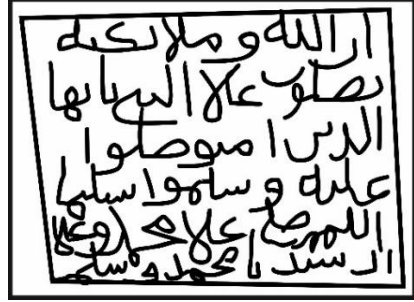 ان الله و ملائكته
يصلون علا النبي يا ايها
الذين امنو صلوا
عليه و سلموا تسليما
اللهم صل علا محمد وعلا
ال سيدنا محمد و سلم